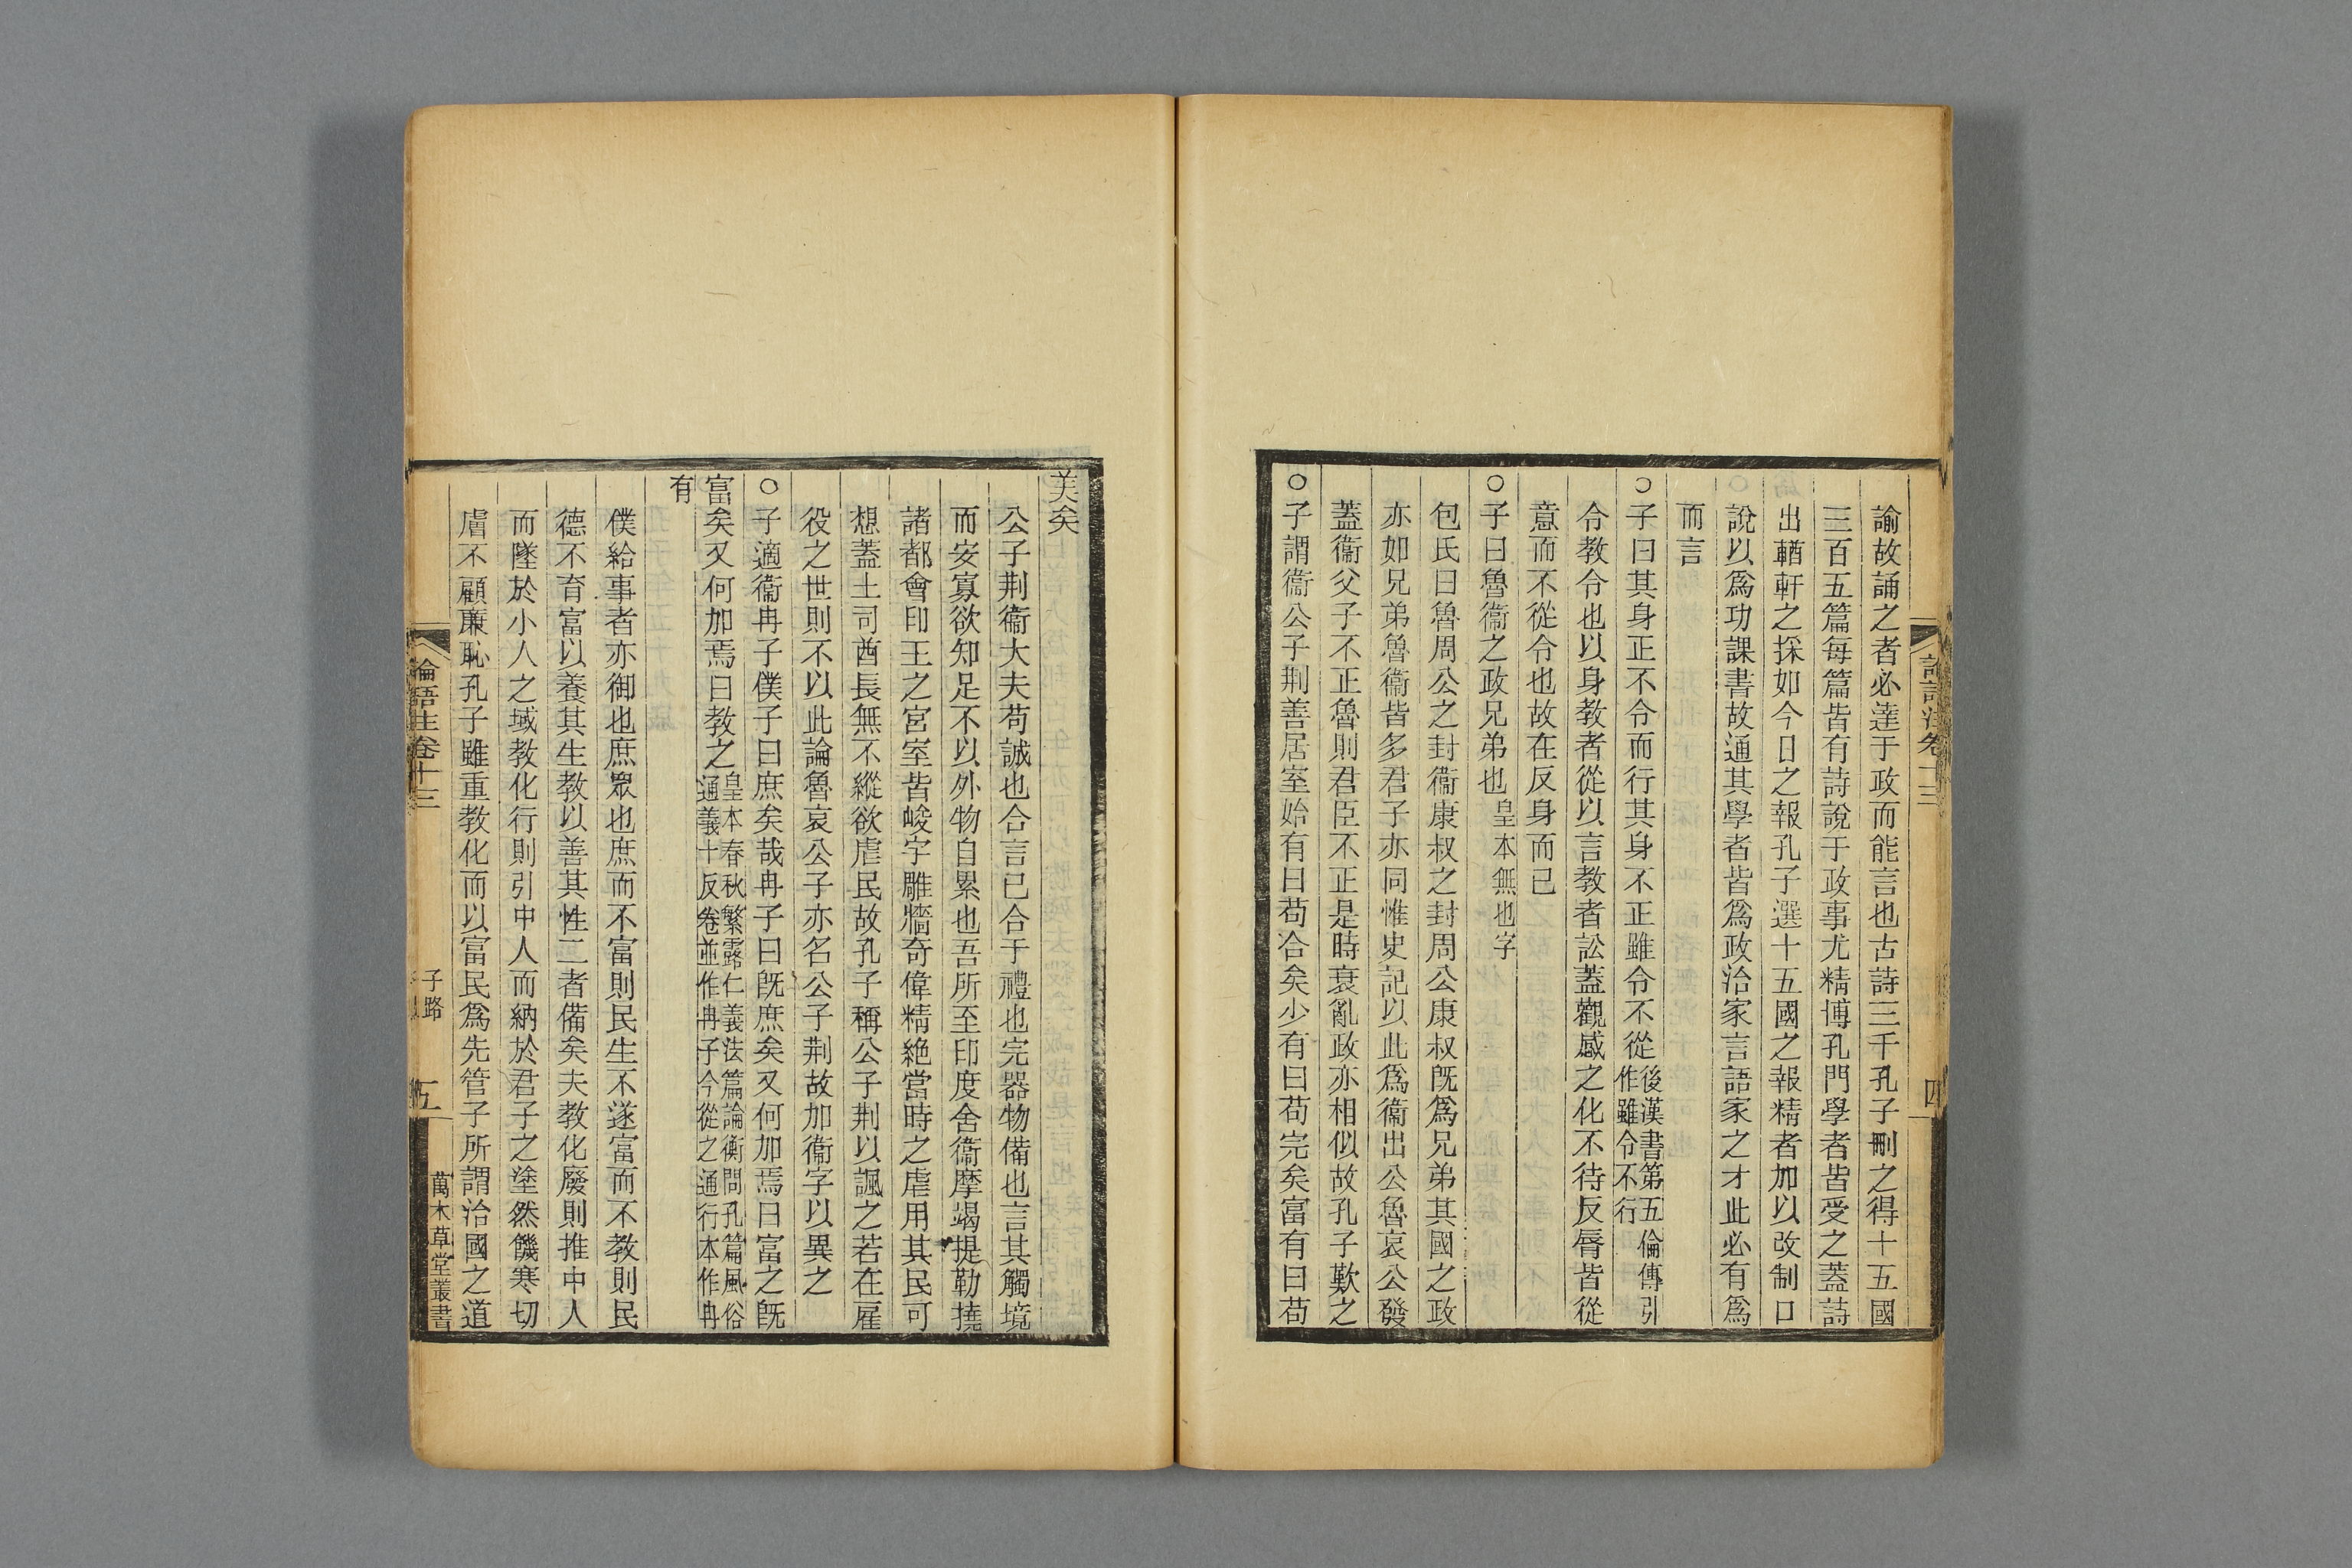 諭故誦之者必達于政而能言也古詩三千孔子刪之得十五國
三百五篇每篇皆有詩說于政事尤精博孔門學者皆受之蓋詩
出輶軒之採如今日之報孔子選十五國之報精者加以改制口
說以爲功課書故通其學者皆爲政治家言語家之才此必有爲
而言
○子曰其身正不令而行其身不正雖令不從後漢書第五倫傳引
作雖令不行
令教令也以身教者從以言教者訟蓋觀感之化不待反脣皆從
意而不從令也故在反身而已
○子曰魯衞之政兄弟也皇本無也字
包氏曰魯周公之封衞康叔之封周公康叔旣爲兄弟其國之政
亦如兄弟魯衞皆多君子亦同惟史記以此爲衞出公魯哀公發
蓋衞父子不正魯則君臣不正是時衰亂政亦相似故孔子歎之
○子謂衞公子荆善居室始有曰苟合矣少有曰苟完矣富有曰苟
四
美矣
公子荆衞大夫苟誠也合言已合于禮也完器物備也言其觸境
而安寡欲知足不以外物自累也吾所至印度舍衞摩竭提勒撓
諸都會印王之宮室皆峻宇雕牆奇偉精絶當時之虐用其民可
想蓋土司酋長無不縱欲虐民故孔子稱公子荆以諷之若在雇
役之世則不以此論魯哀公子亦名公子荆故加衞字以異之
○子適衞冉子僕子曰庶矣哉冉子曰旣庶矣又何加焉曰富之旣
富矣又何加焉曰教之皇本春秋繁露仁義法篇論衡問孔篇風俗
通義十反卷並作冉子今從之通行本作冉
有
僕給事者亦御也庶眾也庶而不富則民生不遂富而不教則民
德不育富以養其生教以善其性二者備矣夫教化廢則推中人
而墜於小人之域教化行則引中人而納於君子之塗然饑寒切
膚不顧廉恥孔子雖重教化而以富民爲先管子所謂治國之道
論語注卷十三
子路
五
萬木草堂叢書